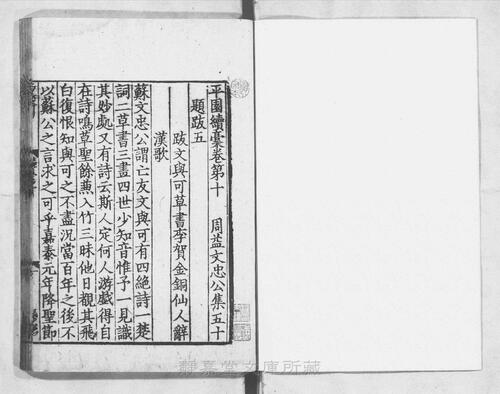 平園續稾卷第十　周益文忠公集五十
題跋五
跋文與可草書李賀金銅仙人辭
漢歌
蘇文忠公謂亡友文與可有四絶詩一楚
詞二草書三畫四世少知音惟予一見識
其妙處又有詩云斯人定何人游戲得自
在詩鳴草聖餘蕉入竹三昧他日觀其飛
白復恨知與可之不盡况當百年之後不
以蘇公之言求之可乎嘉泰元年降聖節
靜嘉堂文庫所藏